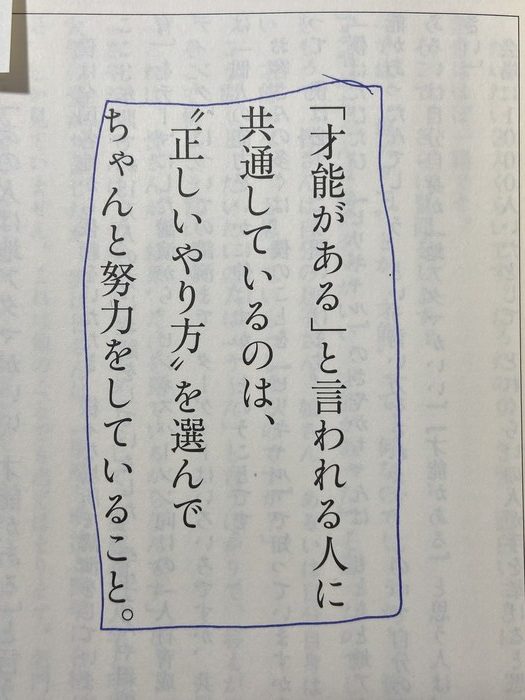 「才能がある」と言われる人に
共通しているのは、
〝正しいやり方〟を選んで
ちゃんと努力をしていること。